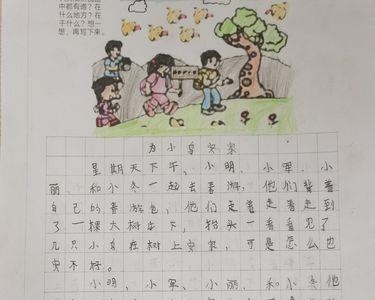 中都有谁？在
什么地方？在
干什么？想一
想，再写下来。
为小鸟安家
星期天下午，小明、小军、小
丽、和小冬一起去春游，他们背着
自己的春游包，他们走着走着走到
了一棵大树下，抬头一看看见了
几只小鸟在树上安家，可是怎么也
安不好。
小明，小军、小丽、和小冬他